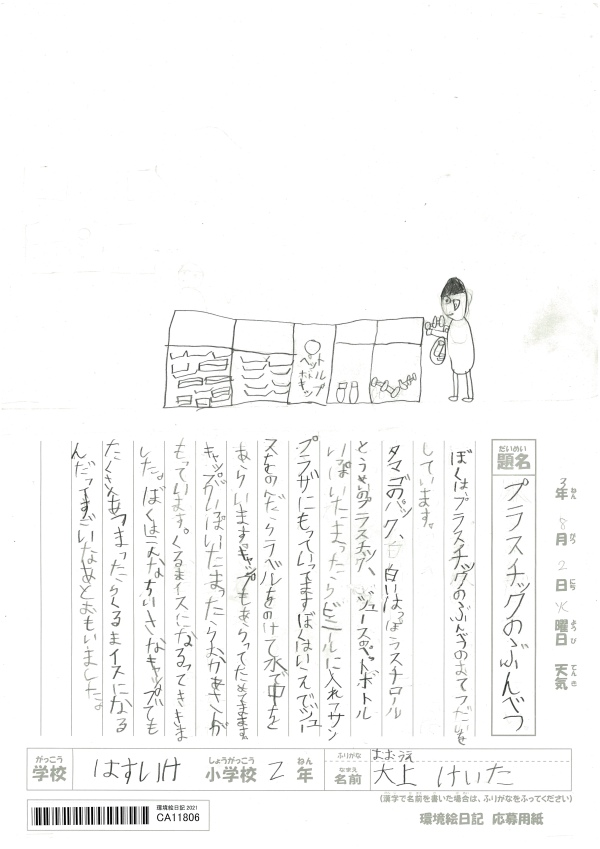 ペット
ボトル
キャップ
3年 8月 2日 火曜日 天気
ねん がつ にち ようび てんき
だいめい
題名
プラスチックのぶんべつ
ぼくはプラスチックのぶんべつのおてつだいを
しています。
タマゴのパック、白いはっぽうスチロール
とうめいのプラスチック、ジュースのペットボトル
いっぱいたまったらビニールに入れてサン
プラザにもっていってますぼくはいえでジュー
スをのんだらラベルをのけて水で中を
あらいます。キャップもあらってためてます。
キャップがいっぱいたまったらおかあさんが
もっていきます。くるまイスになるってききま
した。ぼくはこんなちいさなキャップでも
たくさんあつまったらくるまイスになる
んだってすごいなあとおもいました。
がっこう しょうがっこう ねん
学校 はすいけ 小学校 2年
ふりがな おおうえ
なまえ
名前 大上 けいた
(漢字で名前を書いた場合は、ふりがなをふってください)
環境絵日記 2021
CA11806
環境絵日記 応募用紙